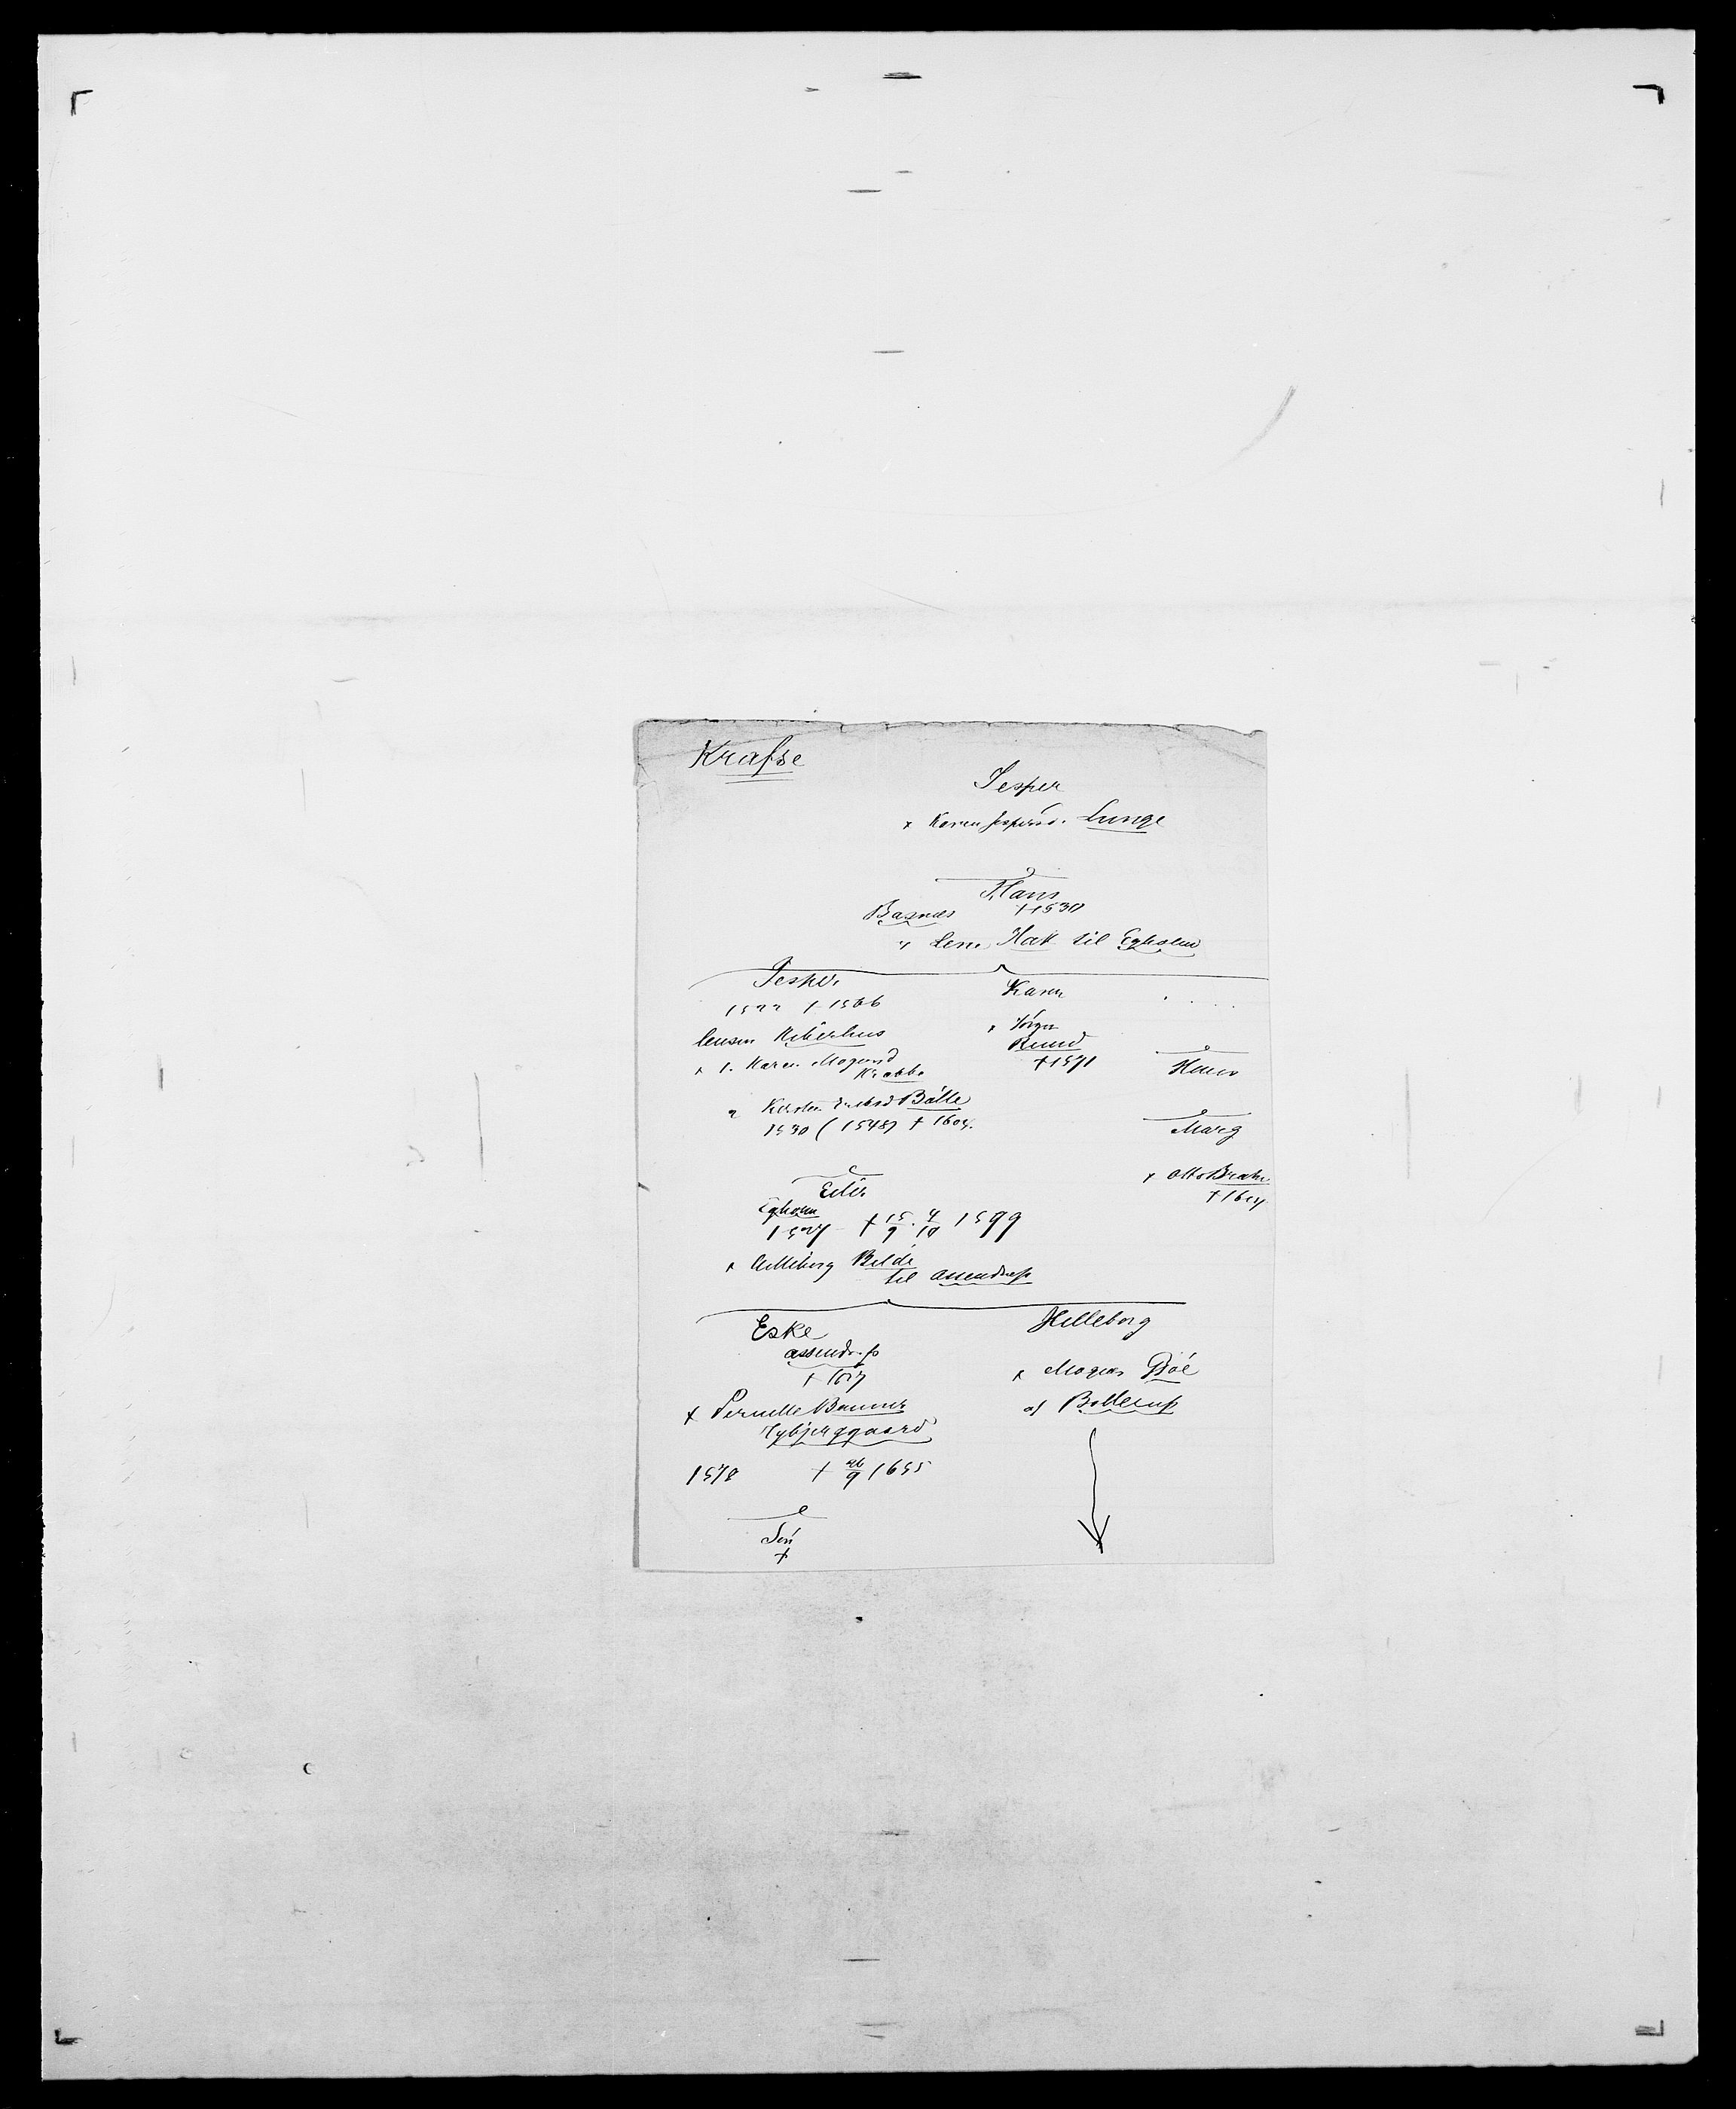 Krafse
Jesper
x Karen Jespersd. Lunge
Hans
Basnæs † 1530
x Lene Hak til Egholm
Jesper
† 1566
x 1. Karen Mogensd
Krabbe
2 Kirsten Bölle
1530 (1548)
Karen
x Jörgen
Rund
† 1571
Marg
x Otto Brahe
Eiler
Egholm
† 15/9. 4/10 1599
x Bilde
til Assendrup
Eske
Assendrup
x Pernelle Banner
Tybjerggaard
1578 † 26/9 1655
Sön
†
Hilleborg
x Mogens Göe
af Bollerup